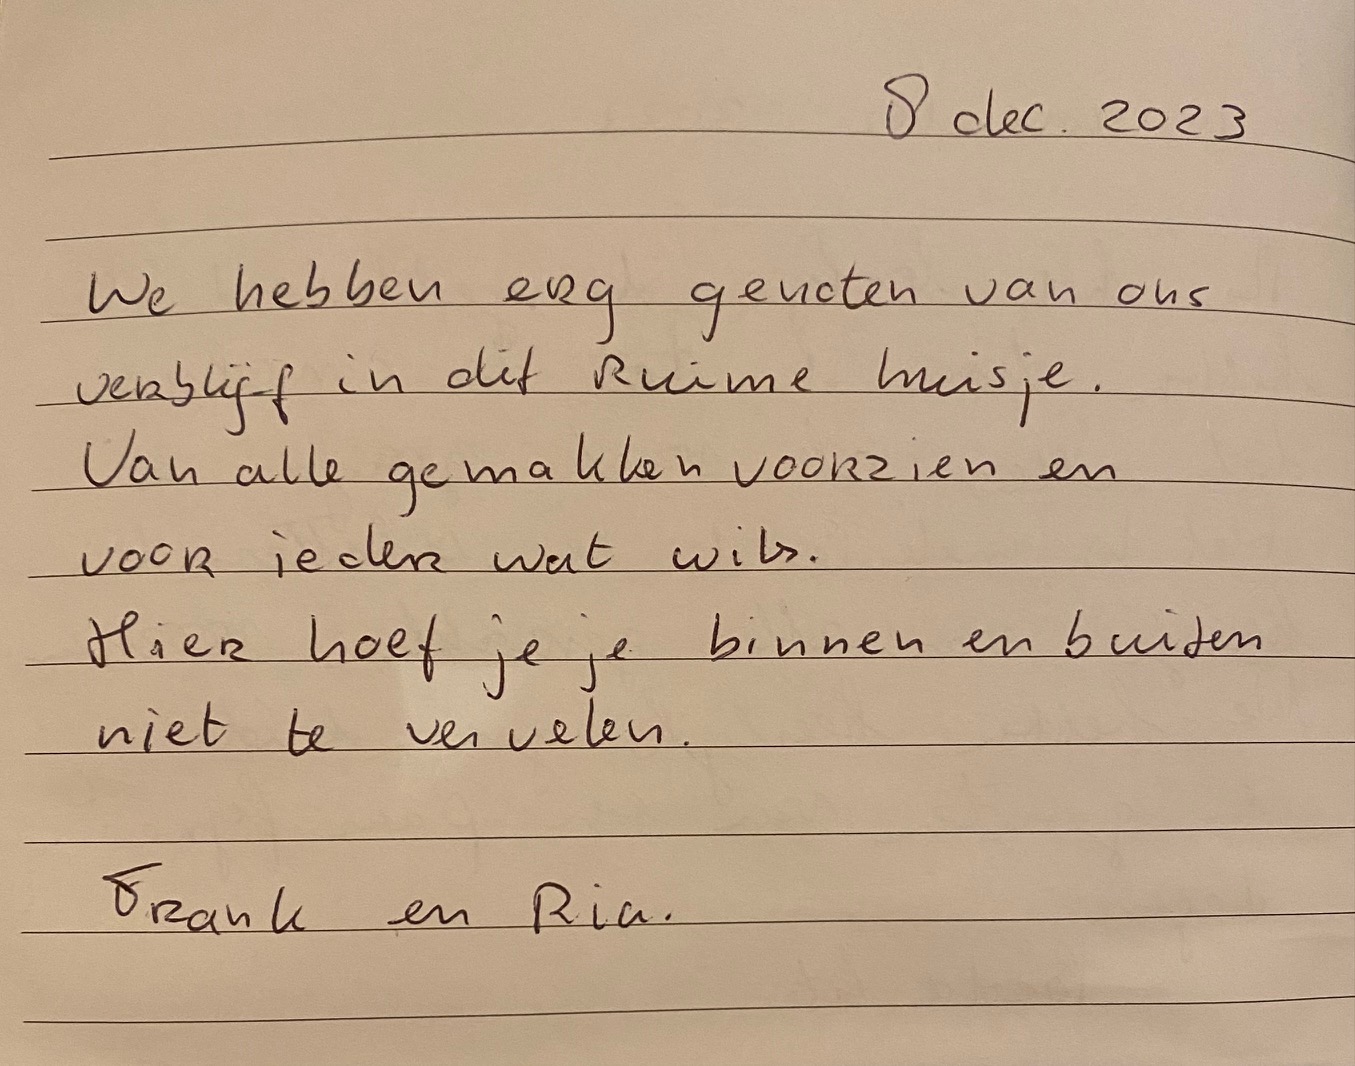 8 dec. 2023
We hebben erg genoten van ons
verblijf in dit ruime huisje.
Van alle gemakken voorzien en
voor ieder wat wils.
Hier hoef je je binnen en buiten
niet te vervelen.
Frank en Ria.